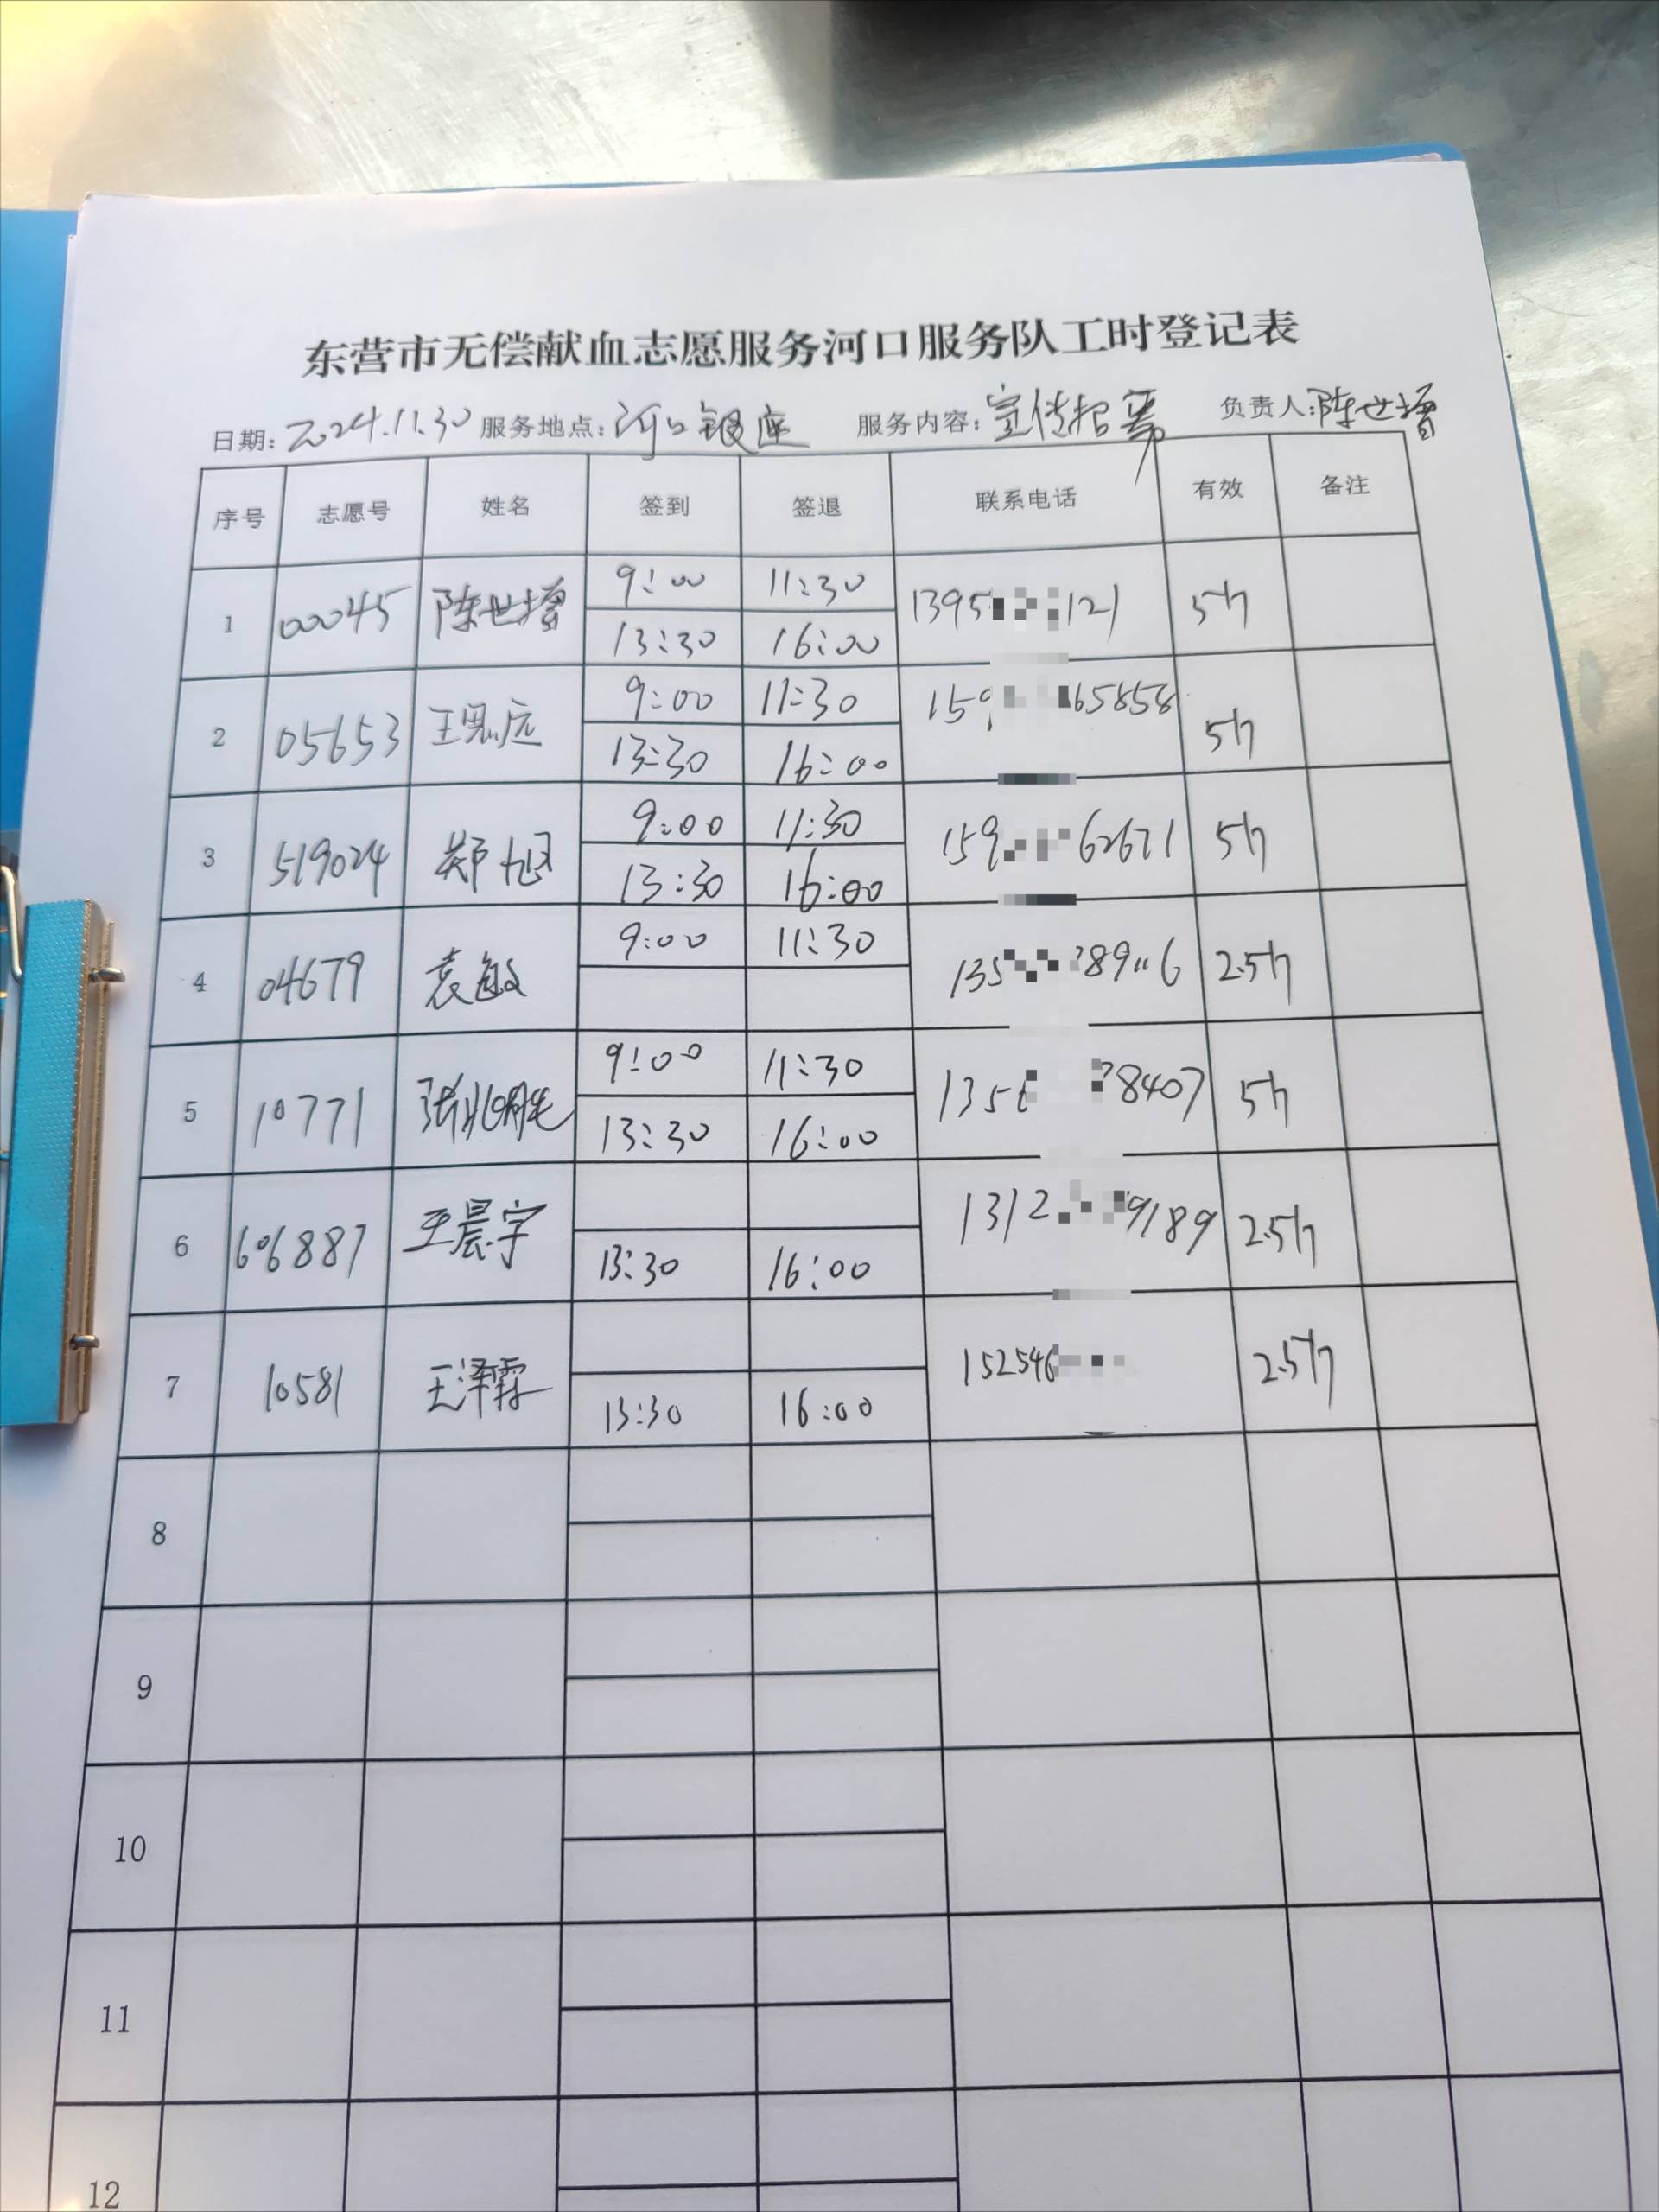 东营市无偿献血志愿服务河口服务队工时登记表
日期: 2024.11.30 服务地点: 河口银座 服务内容: 宣传招募 负责人: 陈世增
序号 志愿号 姓名 签到 签退 联系电话 有效 备注
1 00045 陈世增 9:00 11:30 1395 121 5h
13:30 16:00
2 05653 王思远 9:00 11:30 159 65858 5h
13:30 16:00
3 519024 郑旭 9:00 11:30 159 62671 5h
13:30 16:00
4 04679 袁敏 9:00 11:30 135 2.5h
5 10771 9:00 11:30 135 8407 5h
13:30 16:00
6 606887 王晨宇 1312 9189 2.5h
13:30 16:00
7 10581 王泽霖 152546 2.5h
13:30 16:00
8
9
10
11
12